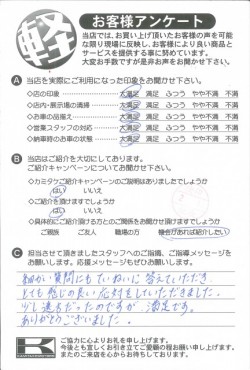 軽
お客様アンケート
当店では、お買い上げ頂いたお客様の声を可能
な限り現場に反映し、お客様により良い商品と
サービスを提供する事に努めています。
大変お手数ですが是非お声をお聞かせ下さい。
A 当店を実際にご利用になった印象をお聞かせ下さい。
◇店の印象 大満足 満足 ふつう やや不満 不満
◇店内・展示場の清掃 大満足 満足 ふつう やや不満 不満
◇お車の品揃え 大満足 満足 ふつう やや不満 不満
◇営業スタッフの対応 大満足 満足 ふつう やや不満 不満
◇納車時のお車の状態 大満足 満足 ふつう やや不満 不満
B 当店はご紹介を大切にしております。
ご紹介キャンペーンについてお聞かせ下さい。
◇カミタケご紹介キャンペーンのご説明はありましたでしょうか
はい いいえ
◇ご紹介を頂けますでしょうか
はい いいえ
◇具体的にご紹介頂ける方とのご関係をお聞かせ頂けますでしょうか
ご親族 ご友人 職場の方 機会があれば紹介したい
C 担当させて頂きましたスタッフへのご指摘、ご指導メッセージを
お願いします。応援メッセージもぜひお願いします。
細かい質問にもていねいに答えていただき
とても感じの良い応対をしていただきました。
少し遠方だったのですが、満足です。
ありがとうございました。
K
ご協力に心よりお礼を申し上げます。
今後とも宜しくお引き立てご愛顧の程お願い申し上げます。
またのご来店を心からお待ちしております。